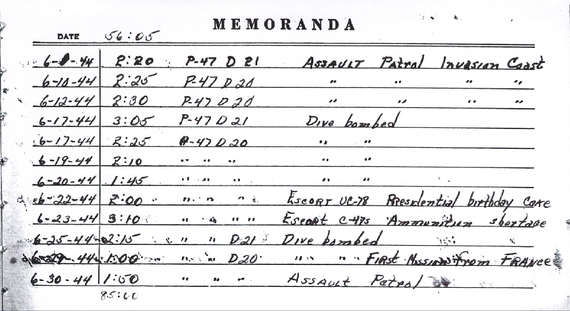 MEMORANDA
DATE 56:05
6-8-44 2:20 P-47 D 21 ASSAULT Patrol Invasion Coast
6-10-44 2:25 P-47 D 20 " " " "
6-12-44 2:30 P-47 D 20 " " " "
6-17-44 3:05 P-47 D 21 Dive bombed
6-17-44 2:25 P-47 D 20 " "
6-19-44 2:10 " " " " "
6-20-44 1:45 " "
6-22-44 2:00 " " " " Escort UC-78 Presidential birthday Cake
6-23-44 3:10 " " " " Escort C-47s Ammunition shortage
6-25-44 2:15 " " D21 Dive bombed
44 1:00 " " D20 " " " First Mission From FRANCE
6-30-44 1:50 " " " Assault Patrol